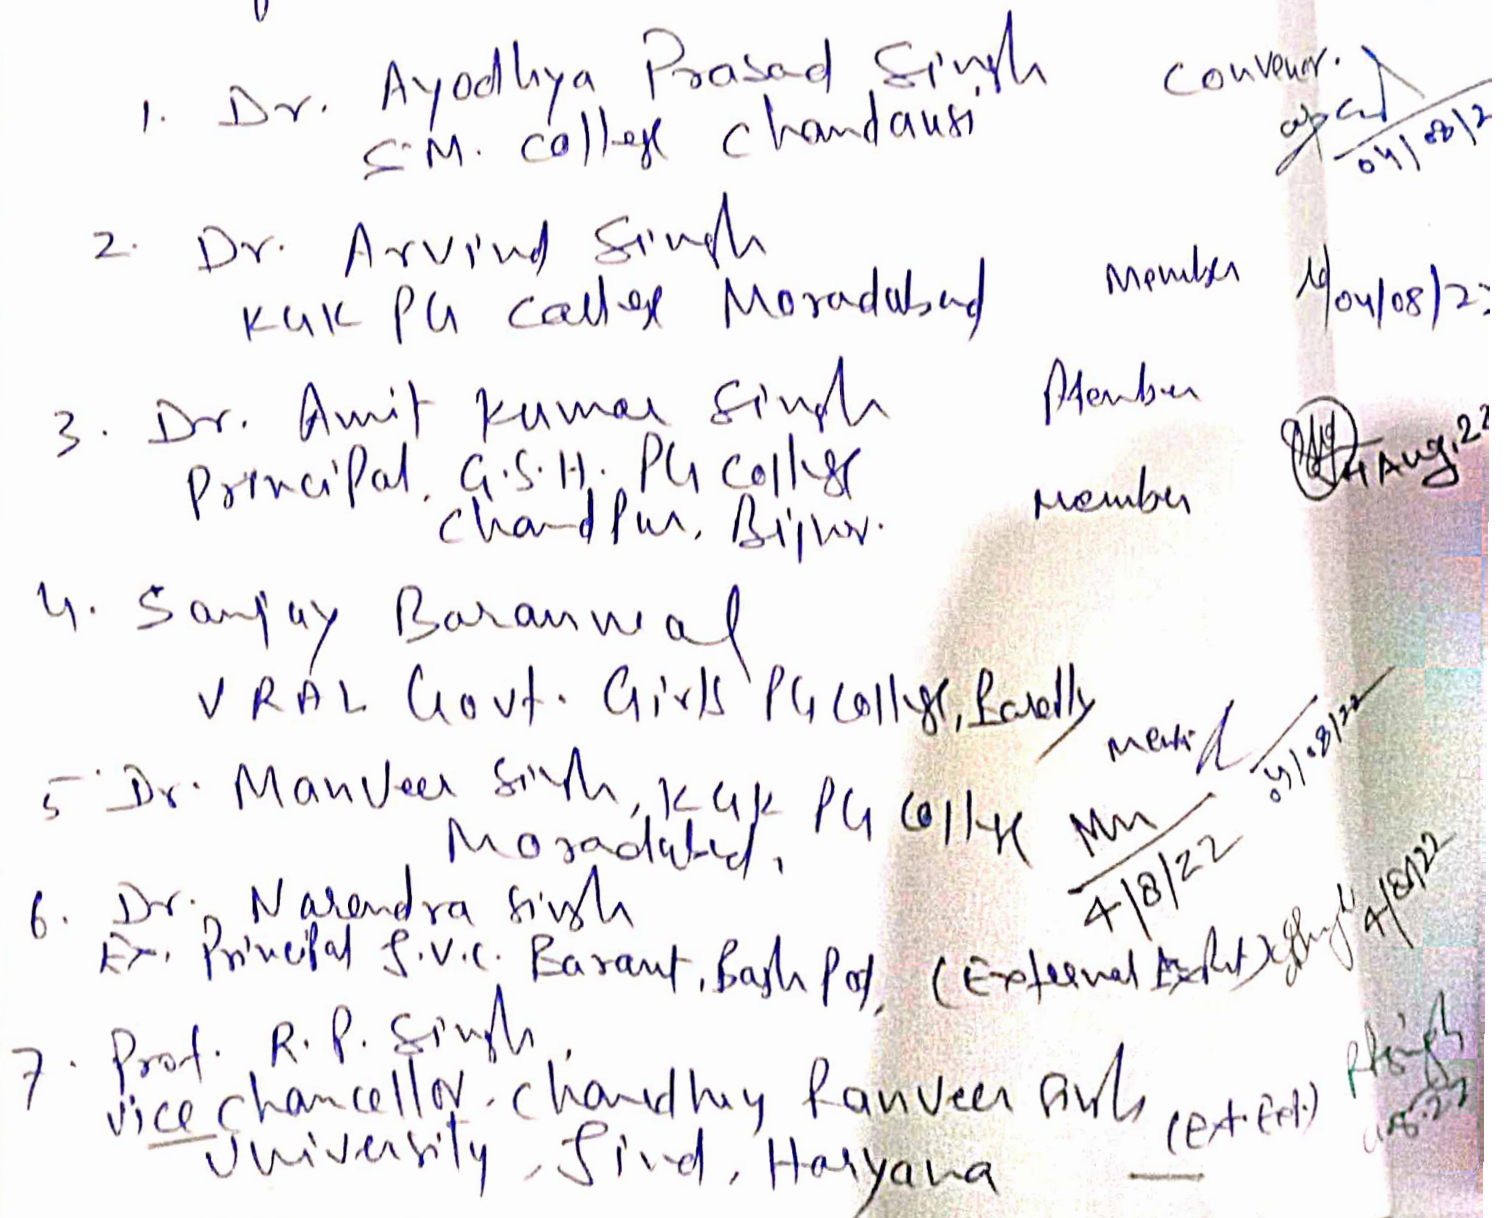 1. Dr. Ayodhya Prasad Singh Convenor.
S.M. College Chandausi
04/08/2
2. Dr. Arvind Singh
KGK PG College Moradabad Member 04/08/22
3. Dr. Amit Kumar Singh Member
Principal, G.S.H. PG College
Chandpur, Bijnor. Member 4 Aug, 22
4. Sanjay Baranwal
VRAL Govt. Girls PG College, Bareilly
04/08/22
5 Dr. Manveer Singh, KGK PG College
Moradabad,
4/8/22
6. Dr. Narendra Singh
Ex. Principal J.V.C. Baraut, Baghpat, (External Expert) 4/8/22
7. Prof. R. P. Singh,
Vice Chancellor, Chaudhary Ranveer Singh
University, Jind, Haryana (Ext. Exp.)